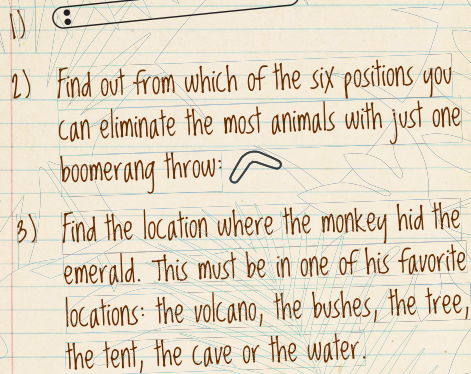 1)
2) Find out from which of the six positions you
can eliminate the most animals with just one
boomerang throw:
3) Find the location where the monkey hid the
emerald. This must be in one of his favorite
locations: the volcano, the bushes, the tree,
the tent, the cave or the water.